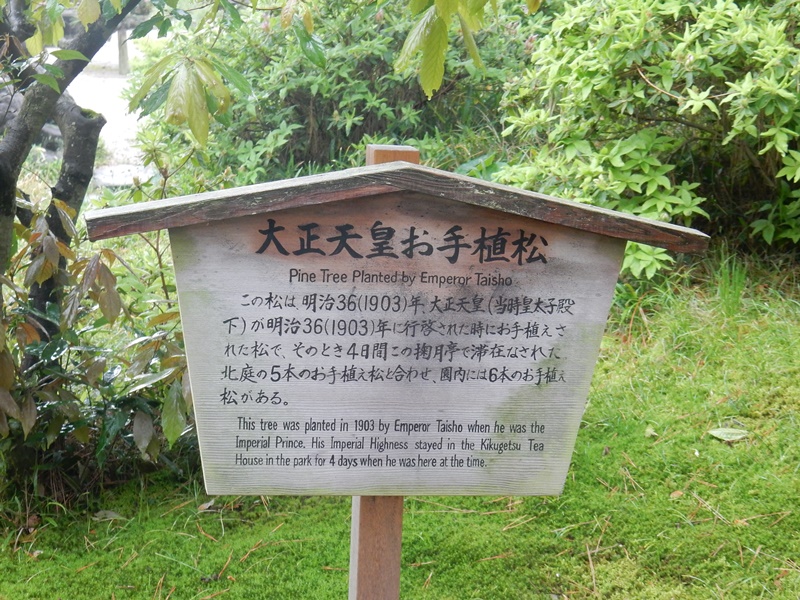 大正天皇お手植松
Pine Tree Planted by Emperor Taisho
この松は、明治36(1903)年、大正天皇(当時皇太子殿
下)が明治36(1903)年に行啓された時にお手植えさ
れた松で、そのとき4日間この掬月亭で滞在なされた。
北庭の5本のお手植え松と合わせ、園内には6本のお手植え
松がある。
This tree was planted in 1903 by Emperor Taisho when he was the
Imperial Prince. His Imperial Highness stayed in the Kikugetsu Tea
House in the park for 4 days when he was here at the time.